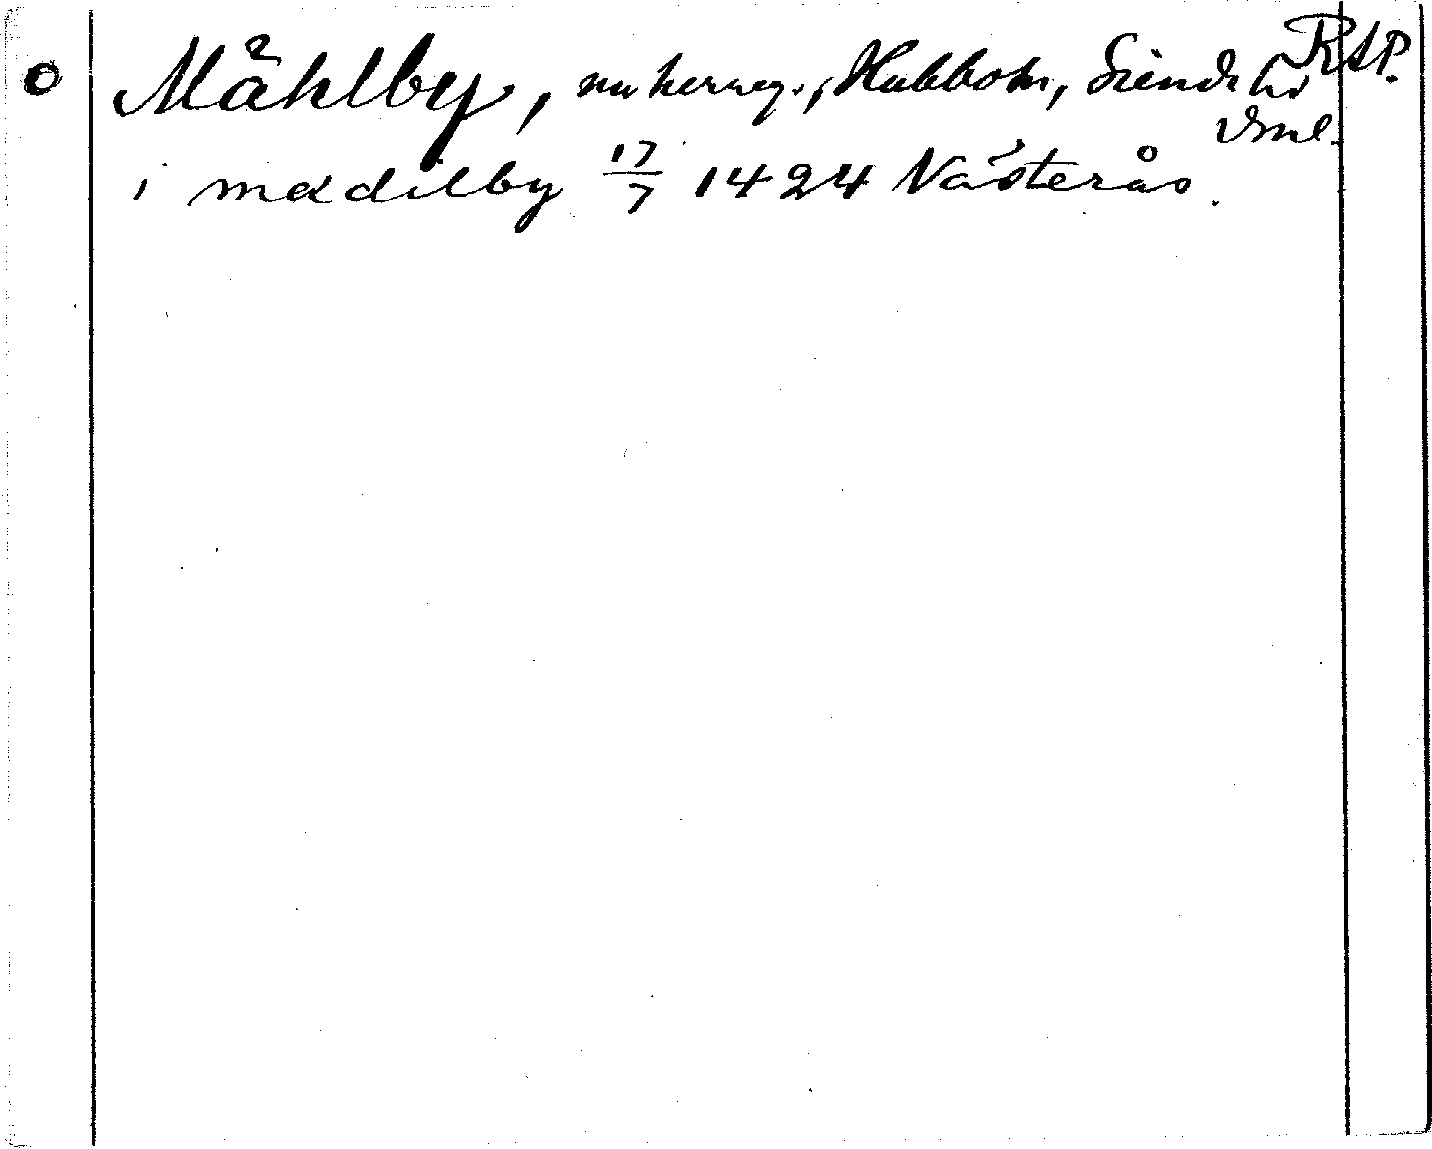 o Måhlby, nu herrag., Hubbo sn, Siende hd RAP.
Vml.
i mædilby 17/7 1424 Västerås.